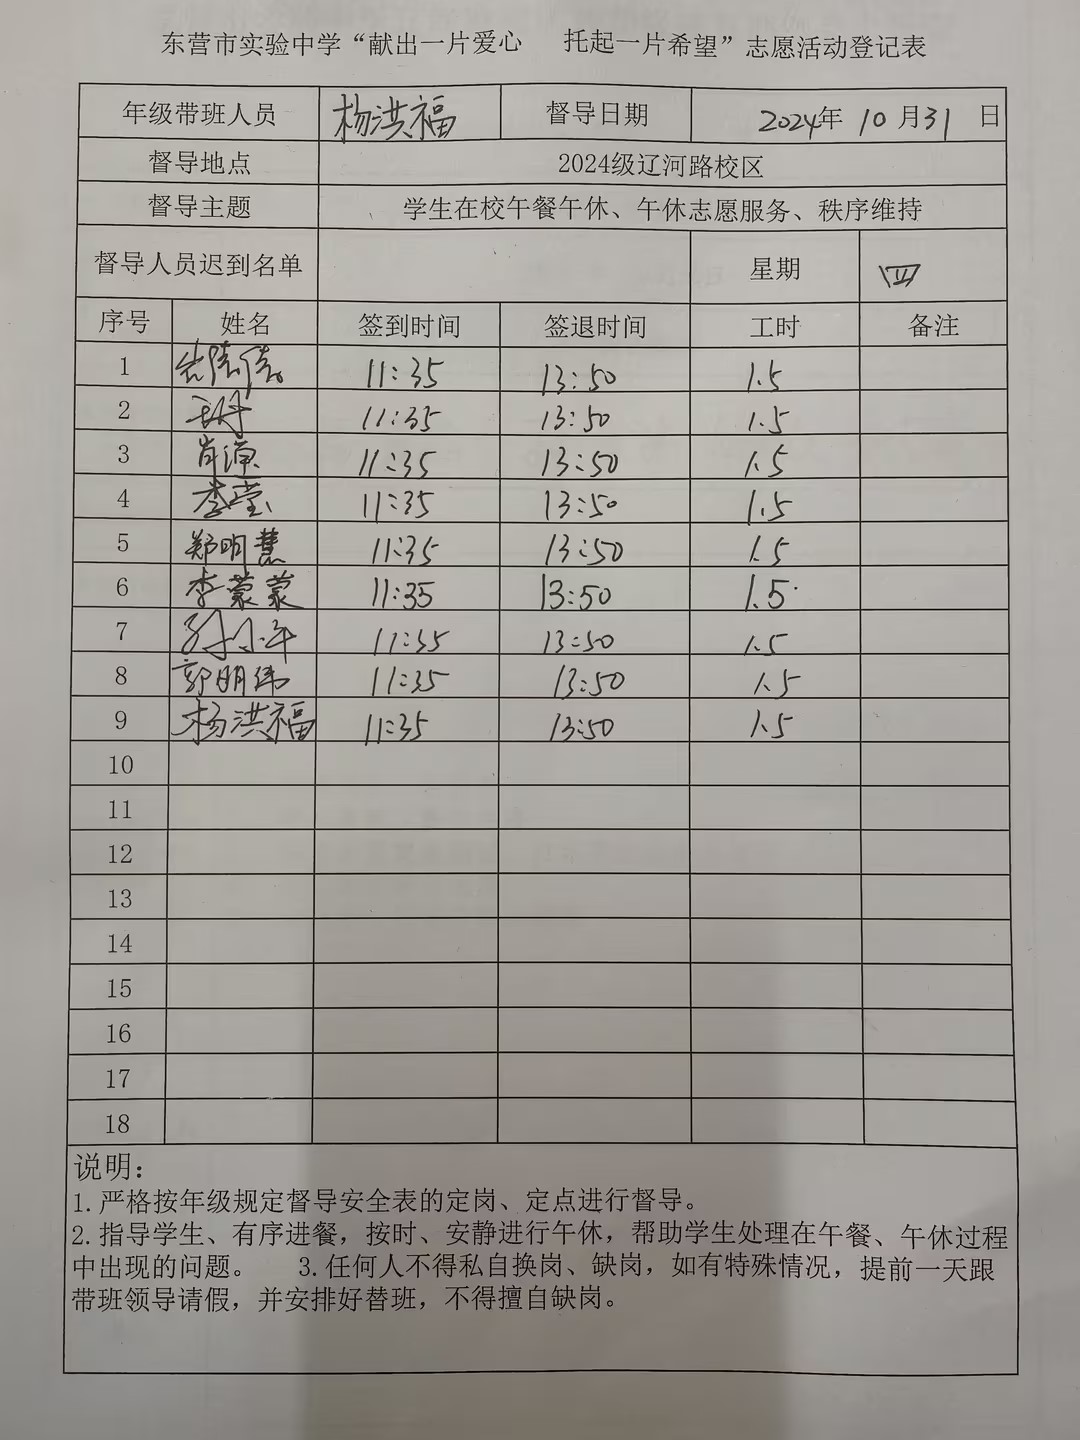 东营市实验中学“献出一片爱心 托起一片希望”志愿活动登记表
年级带班人员 杨洪福 督导日期 2024年 10月31日
督导地点 2024级辽河路校区
督导主题 学生在校午餐午休、午休志愿服务、秩序维持
督导人员迟到名单 星期 四
序号 姓名 签到时间 签退时间 工时 备注
1 11:35 13:50 1.5
2 11:35 13:50 1.5
3 肖源 11:35 13:50 1.5
4 李莹 11:35 13:50 1.5
5 郑明慧 11:35 13:50 1.5
6 李蒙蒙 11:35 13:50 1.5
7 11:35 13:50 1.5
8 郭明伟 11:35 13:50 1.5
9 杨洪福 11:35 13:50 1.5
10
11
12
13
14
15
16
17
18
说明：
1.严格按年级规定督导安全表的定岗、定点进行督导。
2.指导学生、有序进餐，按时、安静进行午休，帮助学生处理在午餐、午休过程
中出现的问题。 3.任何人不得私自换岗、缺岗，如有特殊情况，提前一天跟
带班领导请假，并安排好替班，不得擅自缺岗。